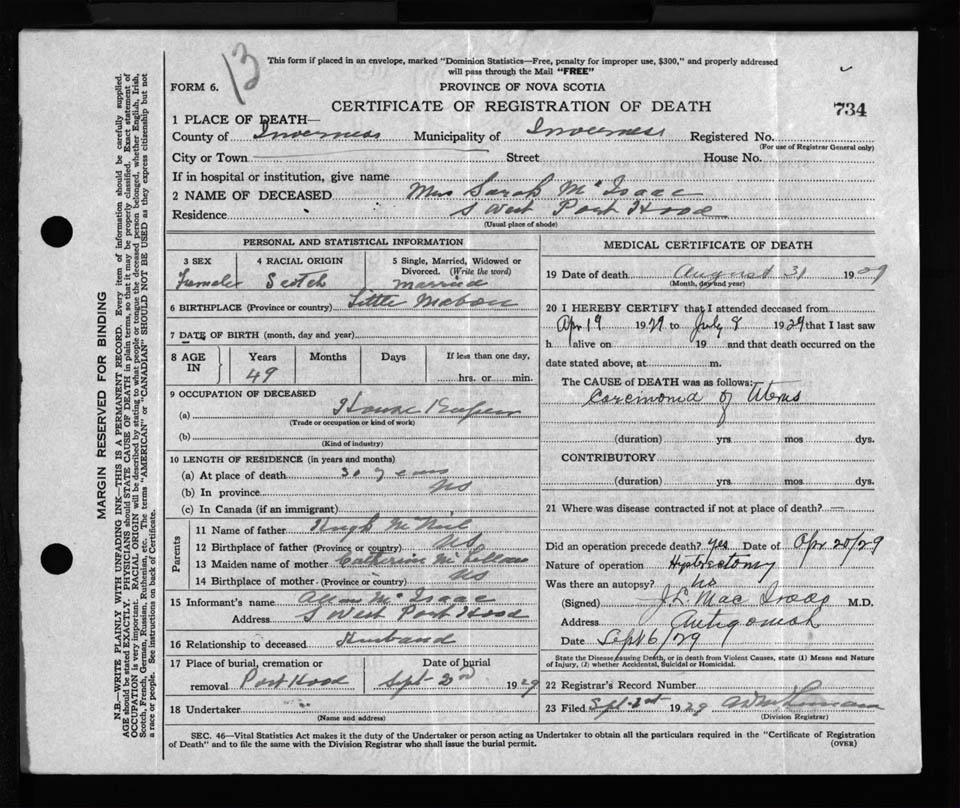 13
This form if placed in an envelope, marked "Dominion Statistics—Free, penalty for improper use, $300," and properly addressed
will pass through the Mail "FREE"
FORM 6.
PROVINCE OF NOVA SCOTIA
CERTIFICATE OF REGISTRATION OF DEATH
734
1 PLACE OF DEATH—
County of Inverness Municipality of Inverness Registered No.
(For use of Registrar General only)
City or Town Street House No.
If in hospital or institution, give name
2 NAME OF DECEASED Mrs Sarah McIsaac
Residence S West Port Hood
(Usual place of abode)
PERSONAL AND STATISTICAL INFORMATION
3 SEX 4 RACIAL ORIGIN 5 Single, Married, Widowed or
Divorced. (Write the word)
Female Scotch Married
6 BIRTHPLACE (Province or country) Little Mabou
7 DATE OF BIRTH (month, day and year)
8 AGE IN Years Months Days If less than one day,
49 hrs. or min.
9 OCCUPATION OF DECEASED
(a) House Keeper
(Trade or occupation or kind of work)
(b)
(Kind of industry)
10 LENGTH OF RESIDENCE (in years and months)
(a) At place of death 30 years
(b) In province NS
(c) In Canada (if an immigrant)
Parents
11 Name of father Hugh McNeil
12 Birthplace of father (Province or country) NS
13 Maiden name of mother Catherine McLellan
14 Birthplace of mother (Province or country) NS
15 Informant's name Allan McIsaac
Address S West Port Hood
16 Relationship to deceased Husband
17 Place of burial, cremation or Date of burial
removal Port Hood Sept 2nd 1929
18 Undertaker
(Name and address)
MEDICAL CERTIFICATE OF DEATH
19 Date of death August 31 1929
(Month, day and year)
20 I HEREBY CERTIFY that I attended deceased from
Apr 19 1929 to July 8 1929 that I last saw
h alive on 19 and that death occurred on the
date stated above, at m.
The CAUSE OF DEATH was as follows:
Carcinoma of Uterus
(duration) yrs. mos. dys.
CONTRIBUTORY
(duration) yrs. mos. dys.
21 Where was disease contracted if not at place of death? —
Did an operation precede death? yes Date of Apr 20/29
Nature of operation
Was there an autopsy? No
(Signed) J.L. Mac M.D.
Address Antigonish
Date Sept 6/29
State the Disease causing Death, or in death from Violent Causes, state (1) Means and Nature
of Injury, (2) whether Accidental, Suicidal or Homicidal.
22 Registrar's Record Number
23 Filed Sept 1929
(Division Registrar)
SEC. 46—Vital Statistics Act makes it the duty of the Undertaker or person acting as Undertaker to obtain all the particulars required in the "Certificate of Registration
of Death" and to file the same with the Division Registrar who shall issue the burial permit. (OVER)
MARGIN RESERVED FOR BINDING
N.B.—WRITE PLAINLY WITH UNFADING INK—THIS IS A PERMANENT RECORD. Every item of information should be carefully supplied.
AGE should be stated EXACTLY. PHYSICIANS should STATE CAUSE OF DEATH in plain terms, so that it may be properly classified. Exact statement of
OCCUPATION is very important. RACIAL ORIGIN will be described by stating to what people or tongue the deceased person belonged, whether English, Irish,
Scotch, French, German, Russian, Ruthenian, etc. The terms "AMERICAN" or "CANADIAN" SHOULD NOT BE USED as they express citizenship but not
a race or people. See instructions on back of Certificate.